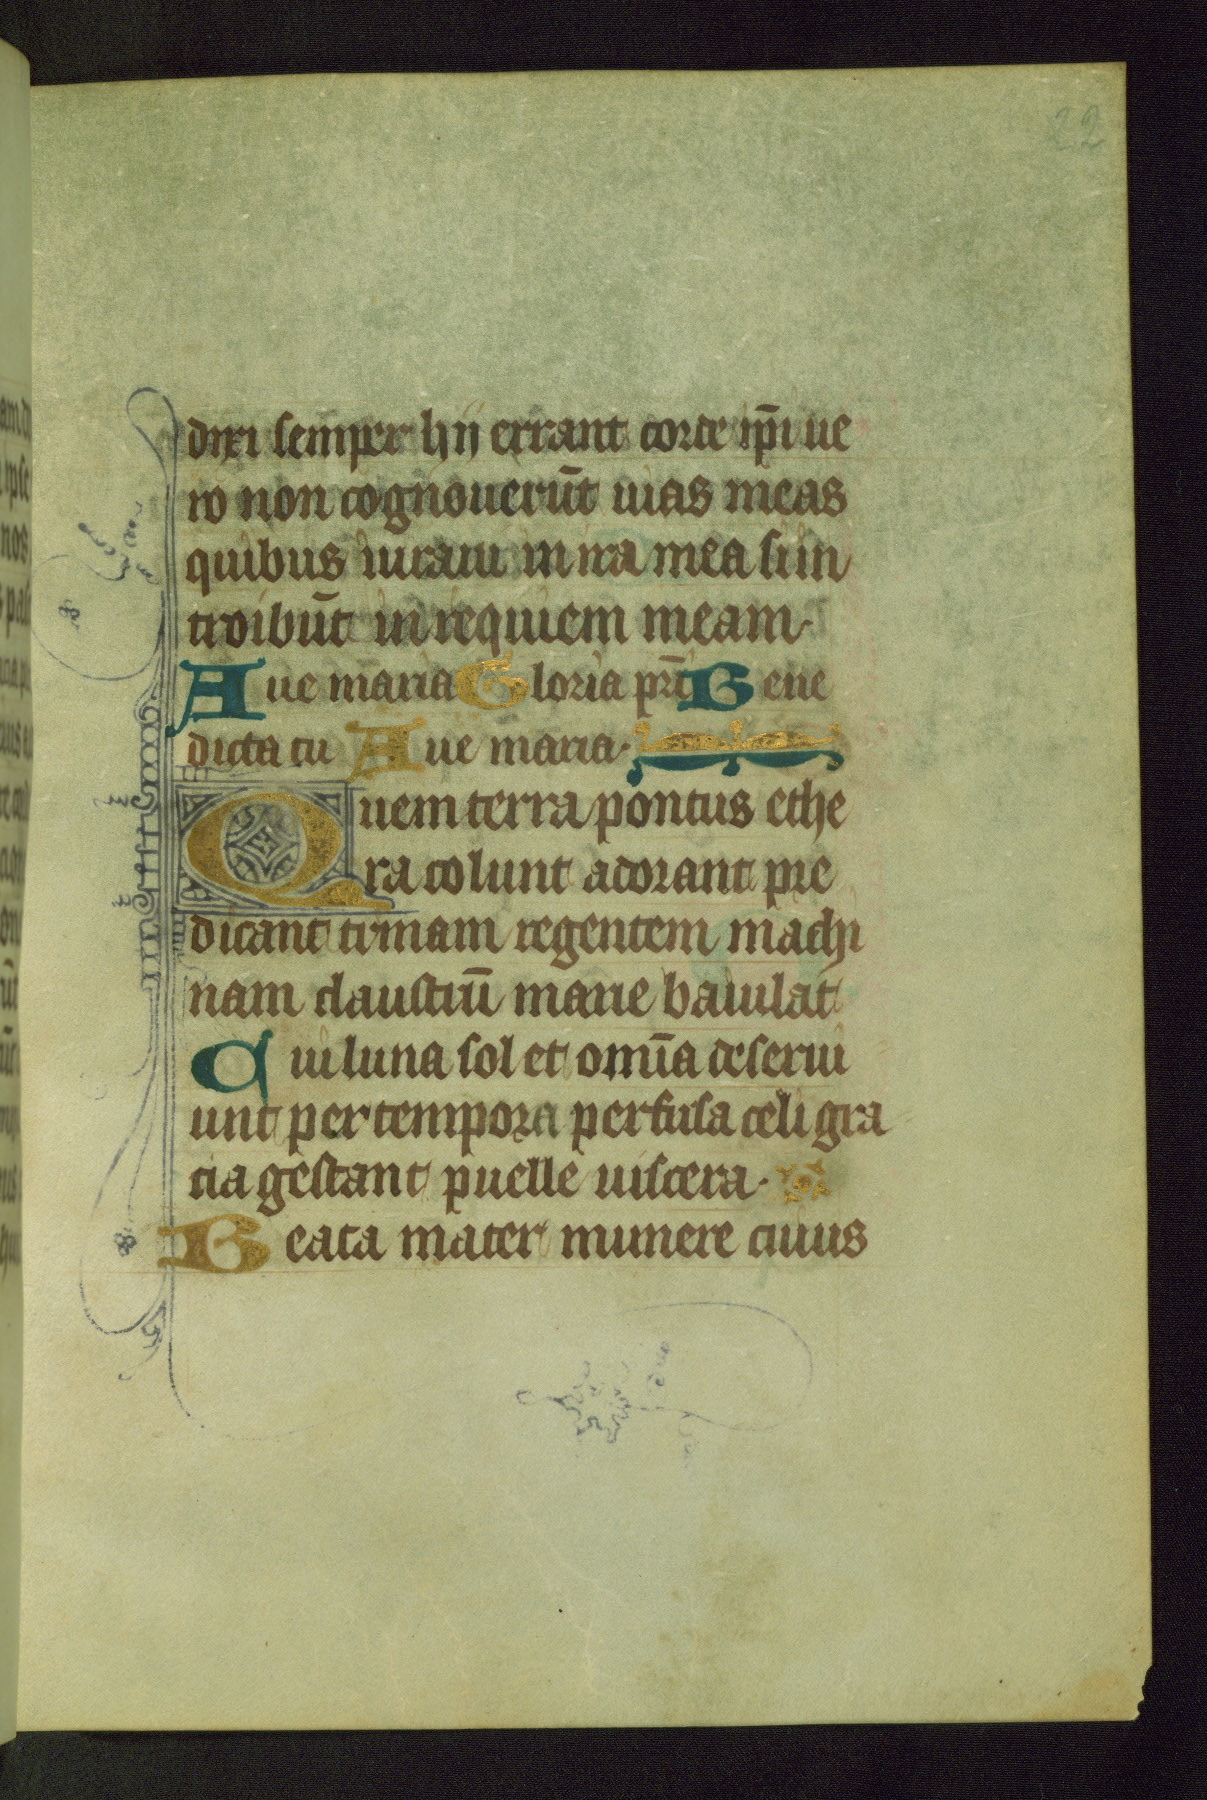 22
dixi semper hii errant corde ip̄i ue
ro non cognouerūt uias meas
quibus iuraui in ira mea si in
troibūt in requiem meam·
Aue maria Gloria pr̄i Bene
dicta tu Aue maria·
Quem terra pontus ethe
ra colunt adorant pre
dicant trinam regentem machi
nam claustrū marie baiulat
Cui luna sol et omīa deserui
unt per tempora perfusa celi gra
cia gestant puelle uiscera·
Beata mater munere cuius